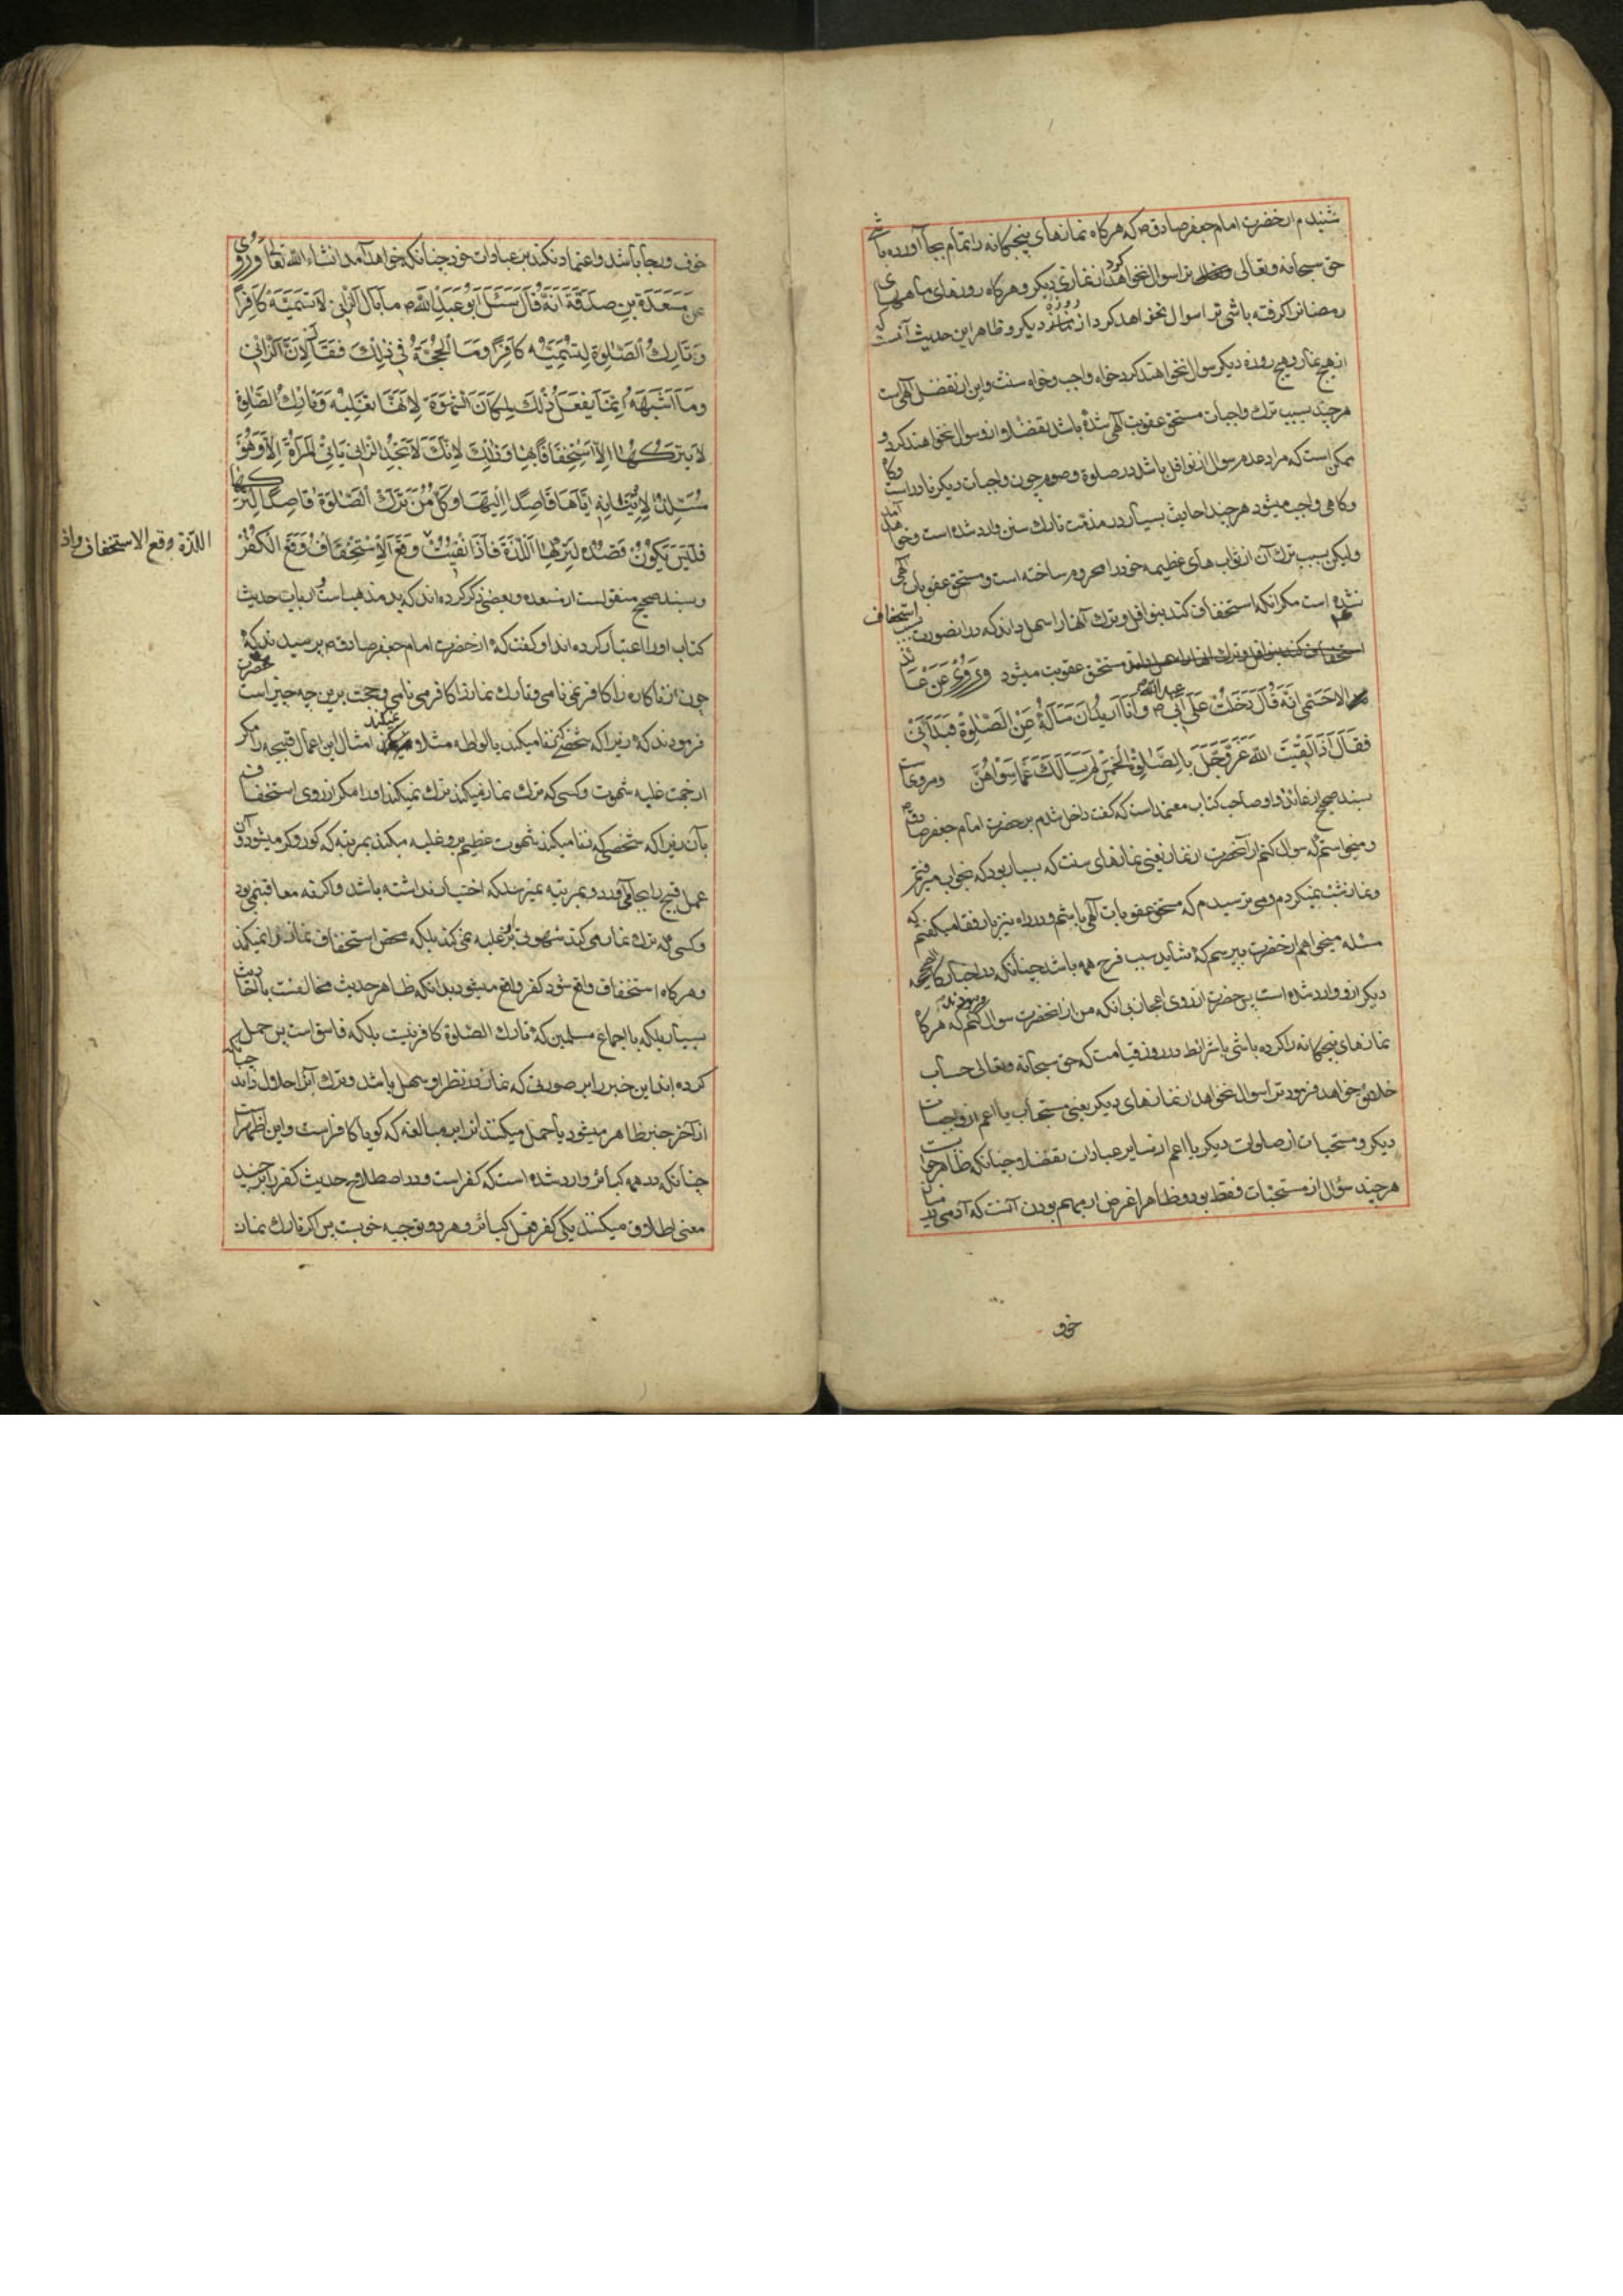 شنیدم از حضرت امام جعفر صادق ص که هرگاه نمازهای پنجگانه را تمام بجا آورده باشی
حق سبحانه و تعالی ترا سوال نخواهد کرد از نمازی دیگر و هرگاه روزهای ماه
رمضان را گرفته باشی ترا سوال نخواهد کرد از روزه دیگر و ظاهر این حدیث آنست که
از هیچ نماز و هیچ روزه دیگر سوال نخواهند کرد خواه واجب و خواه سنت و این از تفضل الهی است
هرچند بسبب ترک واجبات مستحق عقوبت الهی شده باشد تفضلا ازو سوال نخواهند کرد و
ممکن است که مراد عدم سوال از نوافل باشد در صلوة و صوم چون واجبات دیگر نادر است
و کاهی واجب میشود هرچند احادیث بسیار در مذمت تارک سنن وارد شده است و خواهد آمد
ولیکن بسبب ترک آن از ثواب های عظیمه خود را محروم ساخته است و مستحق عقوبات الهی
نشده است مکر انکه استخفاف کند بنوافل و ترک آنها را سهل داند که در انصورت بسبب استخفاف
مستحق عقوبت میشود وَرُوِیَ عَن عَائِذ
الاحمَسِی انّه قالَ دَخَلتُ عَلی اَبی عبد الله ص و اَنَا اُریدُ اَن اَسألَهُ عَنِ الصَّلوةِ فَبَدَأنی
فَقالَ اِذا لَقیتَ اللهَ عَزَّوَجَلَّ بِالصَّلوةِ الخَمسِ لَم یَسألکَ عَمّا سِواهُنَّ و مرویست
بسند صحیح از عائذ و او صاحب کتاب معتمد است که گفت داخل شدم بر حضرت امام جعفر صادق ص
و میخواستم که سوال کنم از آنحضرت از نماز یعنی نمازهای سنت که بسیار بود که بخواب میرفتم
و نماز شب نمیکردم و می ترسیدم که مستحق عقوبات الهی باشم و در راه نیز با رفقا میکفتم که
مسئله میخواهم از حضرت بپرسم که شاید سبب فرح همه باشد چنانکه در اخبار صحیحه
دیگر ازو وارد شده است پس حضرت از روی اعجاز بی انکه من از انحضرت سوال کنم فرمودند که هرگاه
نمازهای پنجگانه را کرده باشی با شرائط در روز قیامت که حق سبحانه و تعالی حساب
خلائق خواهد فرمود ترا سوال نخواهد از نمازهای دیگر یعنی مستحبات یا اعم از واجبات
دیگر و مستحبات از صلوات دیگر یا اعم از سایر عبادات تفضلا چنانکه ظاهر جوابست
هرچند سؤال از مستحبات فقط بود و ظاهرا غرض از مبهم بودن آنست که آدمی میان
خوف
خوف و رجا باشد و اعتماد نکند بر عبادات خود چنانکه خواهد آمد انشاء الله تعالی وَرُوِیَ
عَن مَسعَدَةَ بنِ صَدَقَةَ اَنَّهُ قالَ سُئِلَ اَبُو عَبدِ اللهِ ص ما بالُ الزّانی لا تُسَمّیهِ کافِراً
وَ تارِکُ الصَّلوةِ تُسَمّیهِ کافِراً وَ مَا الحُجَّةُ فی ذلِکَ فَقالَ لِاَنَّ الزّانِیَ
وَ ما اَشبَهَهُ اِنَّما یَفعَلُ ذلِکَ لِمَکانِ الشَّهوَةِ لِاَنَّها تَغلِبُهُ وَ تارِکُ الصَّلوةِ
لا یَترُکُها اِلَّا استِخفافاً بِها وَ ذلِکَ لِاَنَّکَ لا تَجِدُ الزّانِیَ یَأتِی المَرأةَ اِلّا وَ هُوَ
مُستَلِذٌّ لِاِتیانِهِ اِیّاها قاصِداً اِلَیها وَ کُلُّ مَن تَرَکَ الصَّلوةَ قاصِداً لِتَرکِها
فَلَیسَ یَکُونُ قَصدُهُ لِتَرکِهَا اللَّذَّةَ فَاِذا نُفِیَت وَقَعَ الاِستِخفافُ وَقَعَ الکُفرُ
اللذة وقع الاستخفاف و اذ
و بسند صحیح منقول است از مسعده و بعضی ذکر کرده اند که بد مذهب است و ارباب حدیث
کتاب او را اعتبار کرده اند او کفت که از حضرت امام جعفر صادق ص پرسیدند که
چون است که حضرت زنا کار را کافر نمی نامی و تارک نماز را کافر می نامی و حجت برین چه چیز است
فرمودند که زیرا که شخصی که زنا میکند یا لواطه مثلا و امثال این اعمال قبیحه را مکر
از جهت غلبه شهوت و کسی که ترک نماز میکند ترک نمیکند او را مکر از روی استخفاف
بآن زیرا که شخصی که زنا میکند شهوت عظیم برو غلبه میکند بمرتبه که کور و کر میشود و آن
عمل قبیح را بجا می آورد و بمرتبه نمیرسد که اختیار نداشته باشد و اکر نه معاقب نمی بود
و کسی که ترک نماز می کند شهوتی برو غلبه نمی کند بلکه محض استخفاف نماز را نمیکند
و هرگاه استخفاف واقع شود کفر واقع میشود بدانکه ظاهر حدیث مخالفست با احادیث
بسیار بلکه با اجماع مسلمین که تارک الصلوة کافر نیست بلکه فاسق است پس حمل
کرده اند این خبر را بر صورتی که نماز در نظر او سهل باشد و ترک آنرا حلال داند چنانکه
از آخر خبر ظاهر میشود یا حمل میکنند انرا بر مبالغه که کویا کافر است و این اظهر است
چنانکه در همه کبائر وارد شده است که کفر است و در اصطلاح حدیث کفر را بر چند
معنی اطلاق میکنند یکی کفر فعل کبائر و هر دو توجیه خوبست پس اکر تارک نماز